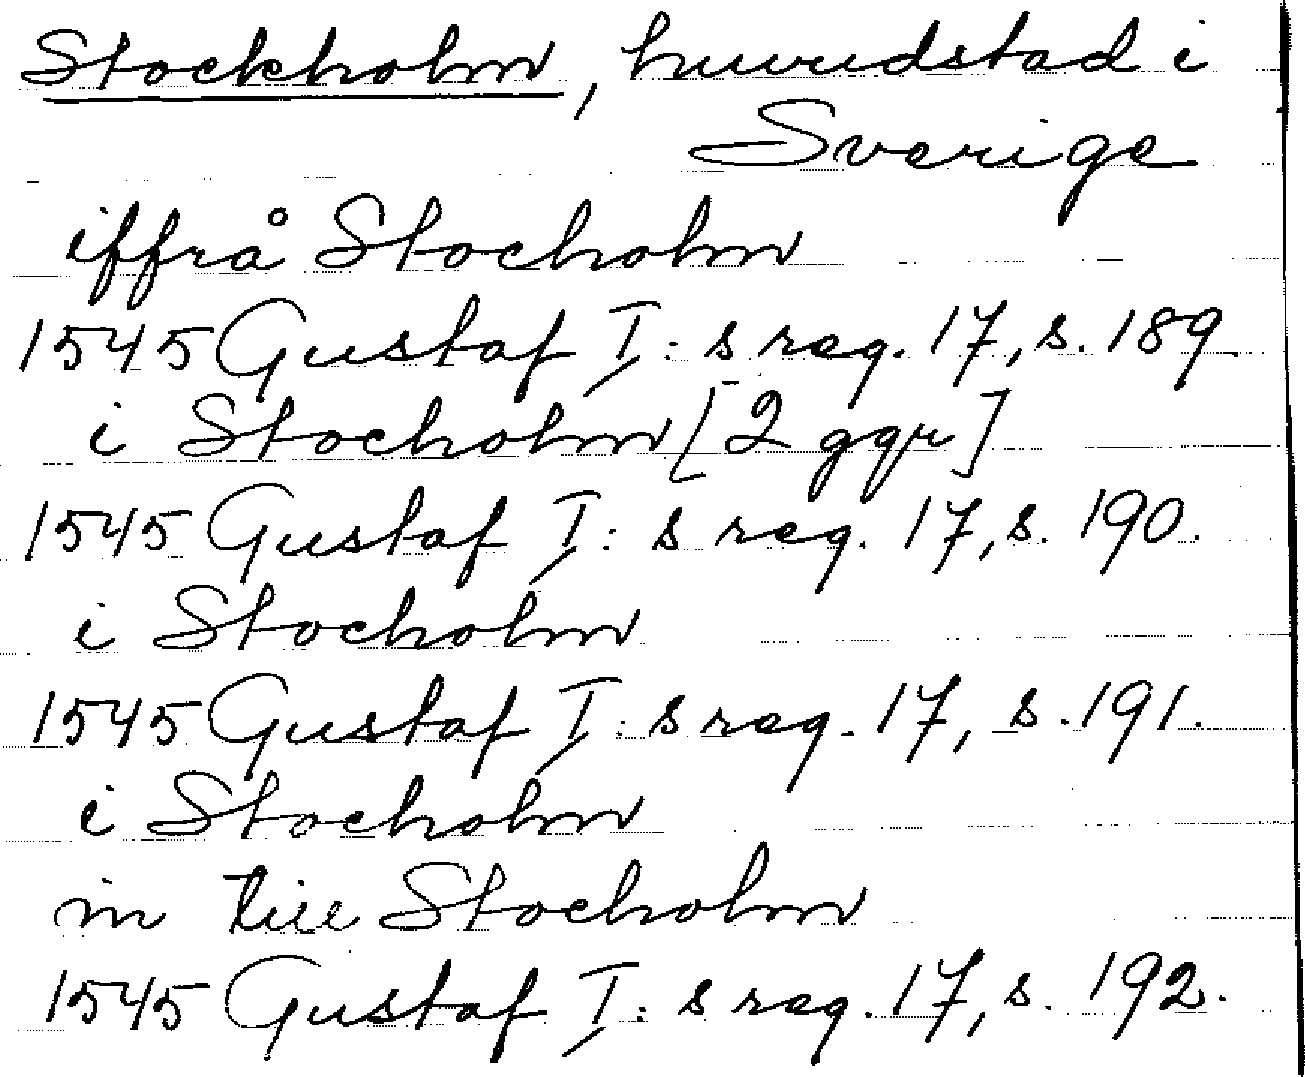 Stockholm, huvudstad i
Sverige
iffrå Stocholm
1545 Gustaf I:s reg. 17, s. 189
i Stocholm [2 ggr]
1545 Gustaf I:s reg. 17, s. 190.
i Stocholm
1545 Gustaf I:s reg. 17, s. 191.
i Stocholm
in till Stocholm
1545 Gustaf I:s reg. 17, s. 192.